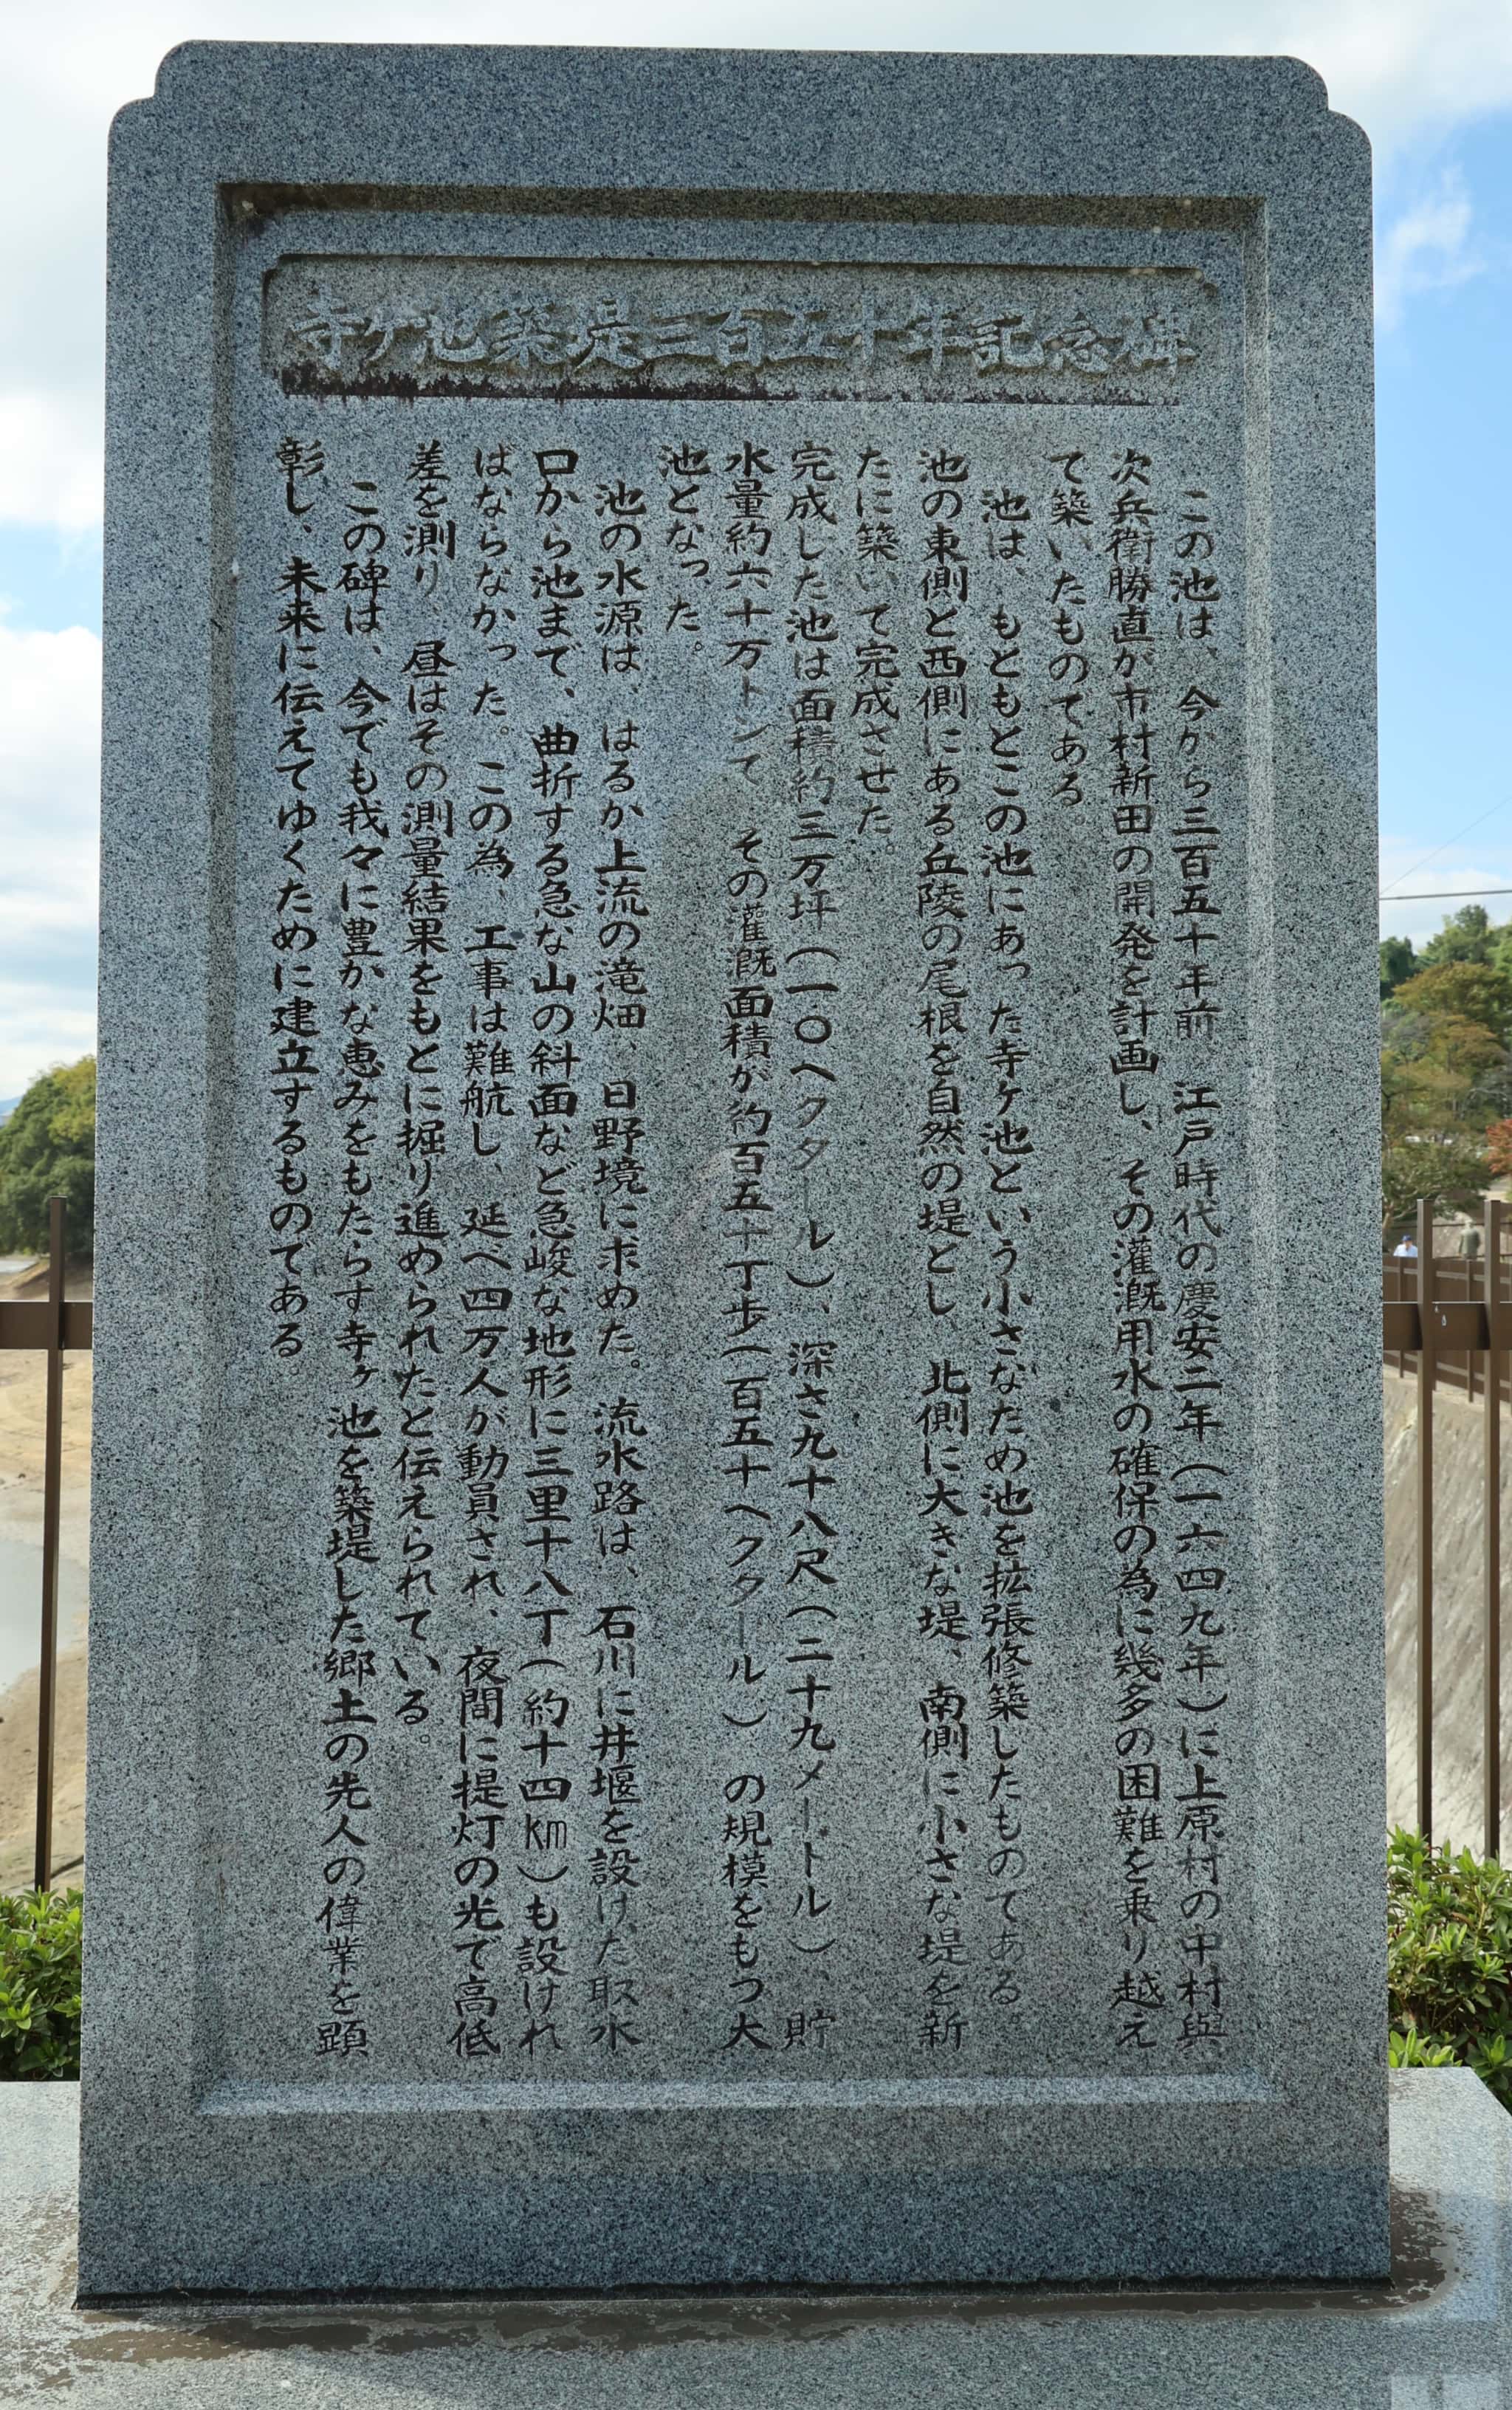 寺ヶ池築堤三百五十年記念碑
この池は、今から三百五十年前、江戸時代の慶安二年(一六四九年)に上原村の中村與
次兵衛勝直が市村新田の開発を計画し、その灌漑用水の確保の為に幾多の困難を乗り越え
て築いたものである。
池は、もともとこの池にあった寺ヶ池という小さなため池を拡張修築したものである。
池の東側と西側にある丘陵の尾根を自然の堤とし、北側に大きな堤、南側に小さな堤を新
たに築いて完成させた。
完成した池は面積約三万坪(一〇ヘクタール)、深さ九十八尺(二十九メートル)、貯
水量約六十万トンで、その灌漑面積が約百五十丁歩(百五十ヘクタール)の規模をもつ大
池となった。
池の水源は、はるか上流の滝畑、日野境に求めた。流水路は、石川に井堰を設けた取水
口から池まで、曲折する急な山の斜面など急峻な地形に三里十八丁(約十四km)も設けれ
ばならなかった。この為、工事は難航し、延べ四万人が動員され、夜間に提灯の光で高低
差を測り、昼はその測量結果をもとに掘り進められたと伝えられている。
この碑は、今でも我々に豊かな恵みをもたらす寺ヶ池を築堤した郷土の先人の偉業を顕
彰し、未来に伝えてゆくために建立するものである。